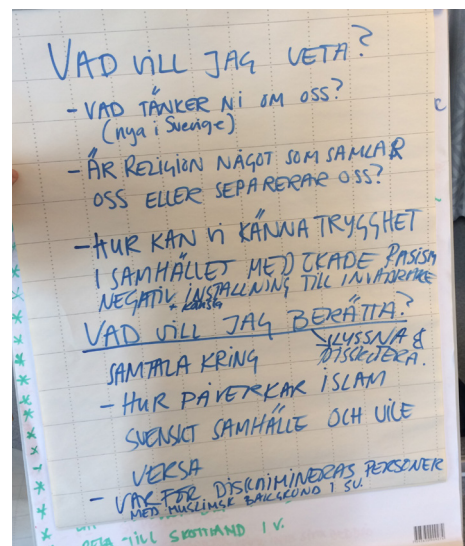 VAD VILL JAG VETA?
- VAD TÄNKER NI OM OSS?
(nya i Sverige)
- ÄR RELIGION NÅGOT SOM SAMLAR
OSS ELLER SEPARERAR OSS?
- HUR KAN VI KÄNNA TRYGGHET
I SAMHÄLLET MED ÖKADE RASISM
NEGATIV INSTÄLLNING TILL INVANDRARE
* KÄNSLA
VAD VILL JAG BERÄTTA?
LYSSNA &
DISKUTERA.
SAMTALA KRING
- HUR PÅVERKAR ISLAM
SVENSKT SAMHÄLLE OCH VICE
VERSA
- VARFÖR DISKRIMINERAS PERSONER
MED MUSLIMSK BAKGRUND I SV.
TILL SKOTTLAND I V.